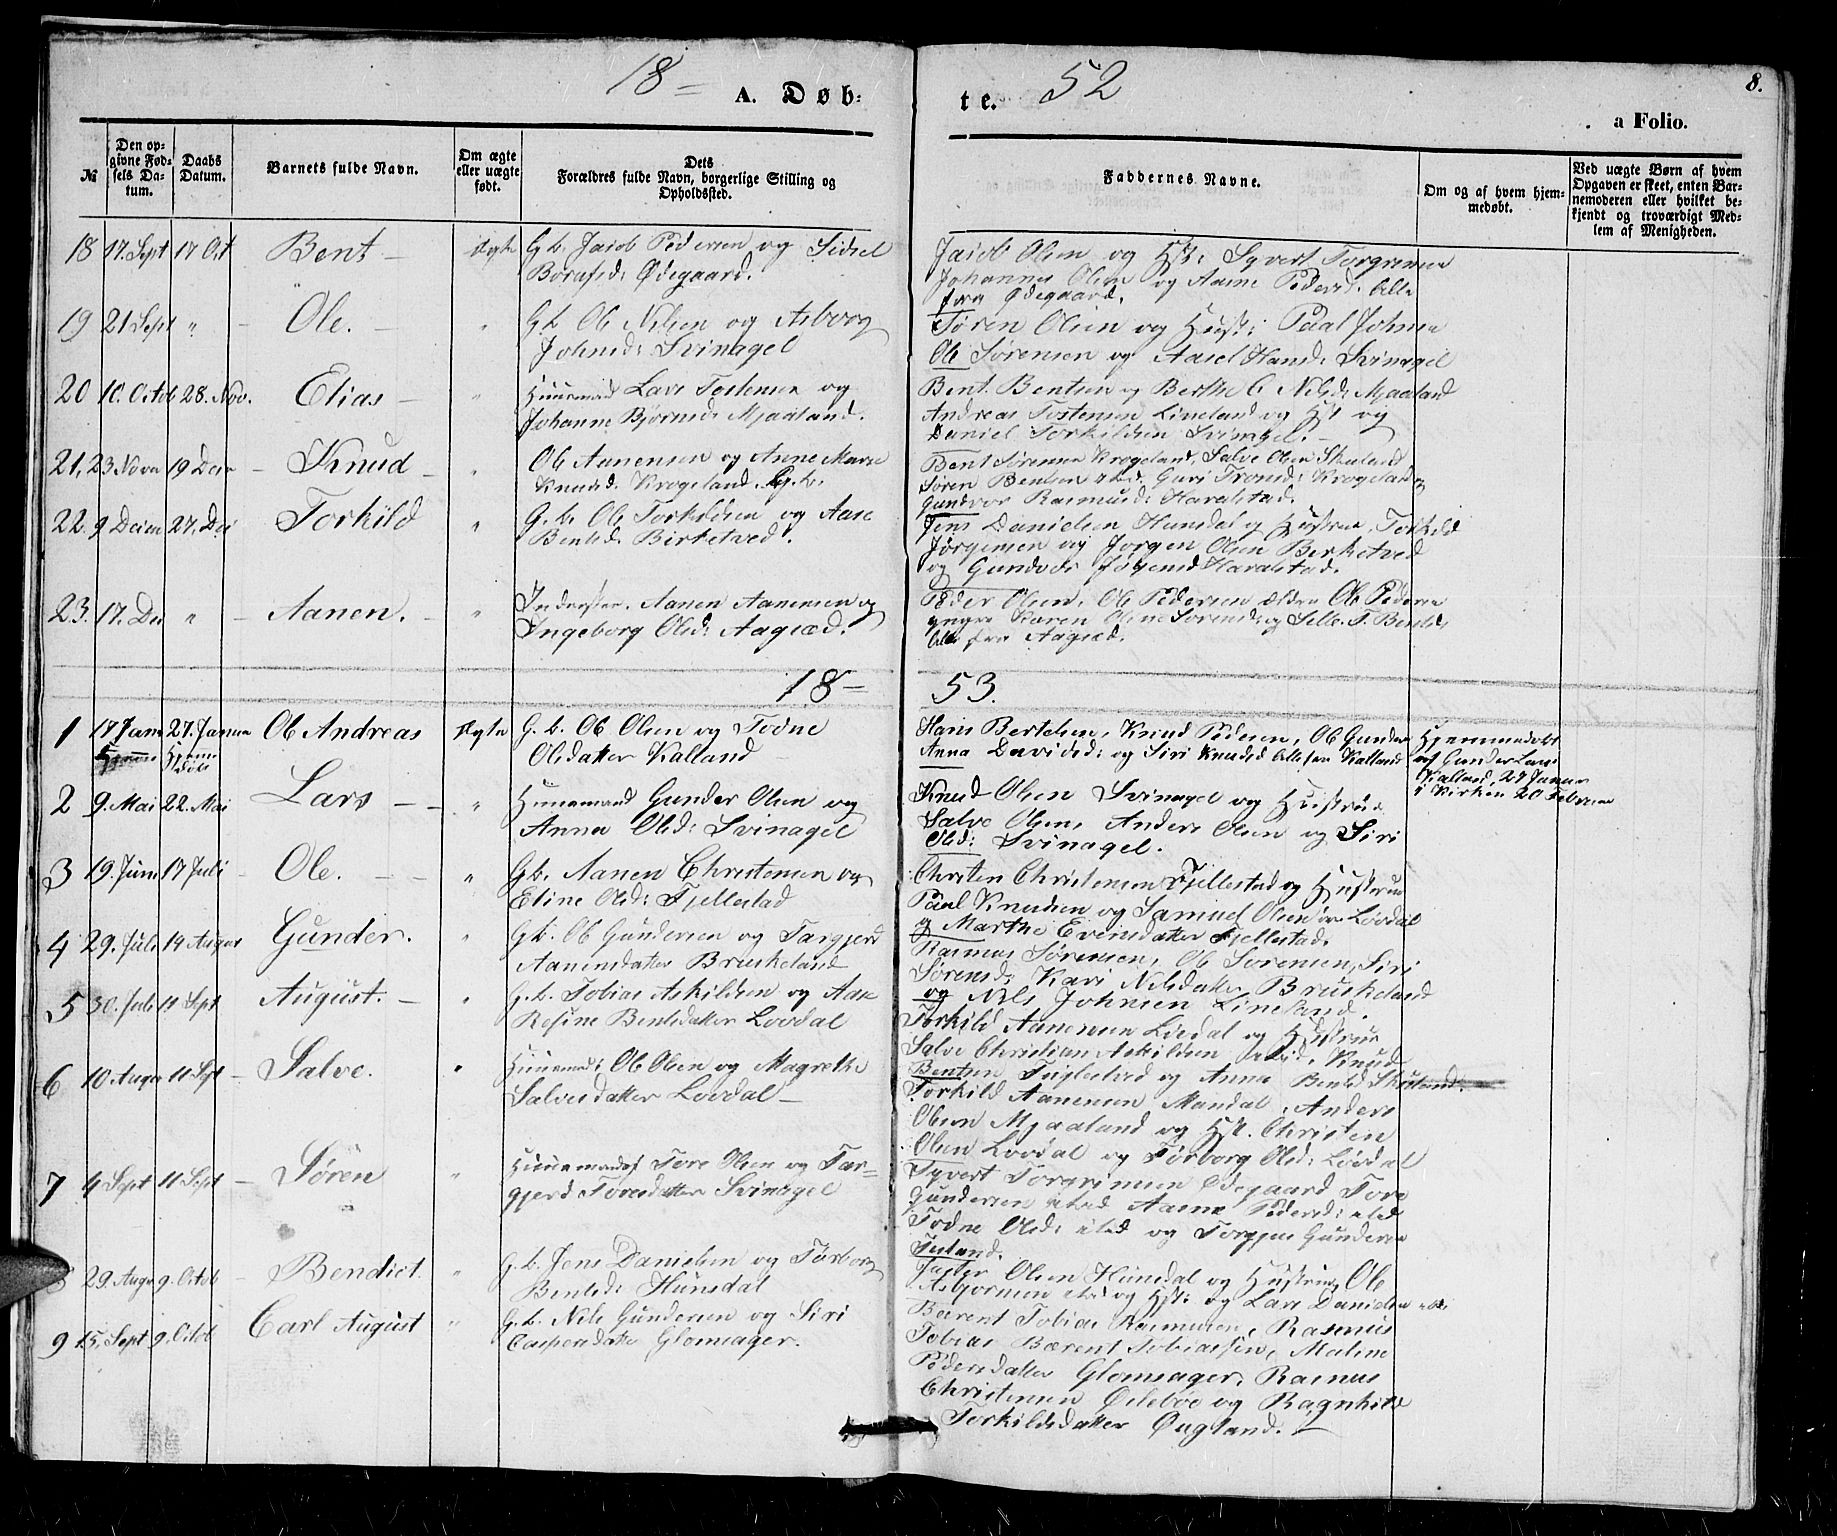 18 = A. Døb- te. 52 8.
a Folio.
№ Den opgivne Fødsels Datum. Daabs Datum. Barnets fulde Navn. Om ægte eller uægte født. Dets Forældres fulde Navn, borgerlige Stilling og Opholdssted. Faddernes Navne. Om og af hvem hjemmedøbt. Ved uægte Børn af hvem Opgaven er skeet, enten Barnemoderen eller hvilket bekjendt og troværdigt Medlem af Menigheden.
18 17. Sept 17 Oct Bent - Ægte G.b. Jacob Pedersen og Sidsel
Ødegaard.
Jacob Olsen og Hst: Syvert Torgrimsen
Johannes Olsen og Aasne Pedersd: alle
fra Ødegaard.
19 21 Sept " - Ole. - " G.b. Ole Nilsen og Asborg
Johnsd: Svinagel
Søren Olsen og Hust: Paal Johnsen
Ole Sørensen og Aasel Hansd: Svinagel
20 10. Octob 28. Nov. Elias - " Huusmand Lars Tostensen og
Johanne Bjørnsd: Mjaaland.
Bent Bentsen og Berthe C Nilsd: Mjaaland
Andreas Tostensen Lineland og Hst og
Daniel Torkildsen Svinagel.
21. 23 Nove 19 Dece - Knud - " Ole Aanensen og Anne Marie
Knudsd: Krogeland. G.b.
Bent Sørensen Krogeland, Salve Olsen Skeiland
Søren Bentsen ibid. Guri Tronds: Krogeland og
Gundvor Rasmusd: Haralstad.
22. 9 Decem 27. Dec Torkild " G.b. Ole Torkildsen og Aase
Bentsd: Birketved.
Jens Danielsen Hunsdal og Hustrue, Torkild
Jørgensen og Jørgen Olsen Berketved
og Gundvor Jørgensd Haralstad.
23. 17. Dec " - Aanen. - " Inderster. Aanen Aanensen og
Ingeborg Olsd: Aagsæd.
Peder Olsen, Ole Pedersen ældre Ole Pedersen
yngre Karen Oline Sørensd: og Sille T. Bentsd:
alle fra Aagsæd.
18 = 53.
1 17 Janu 27. Janua Ole Andreas Ægte G.b. Ole Olsen og Todne
Hjemme døbt
Olsdatter Kalland
Hans Bertelsen, Knud Pedersen, Ole Gunders
Anna Davidsd: og Siri Knudsd alle fra Kalland
Hjemmedøbt
af Gunder Larss
Kalland, 27 Januar
i Kirken 20 Februar
2 9. Mai 22. Mai Lars - - " Huusmand Gunder Olsen og
Anna Olsd: Svinagel
Knud Olsen Svinagel og Hustrue
Salve Olsen, Anders Olsen og Siri
Olsd: Svinagel.
3 19. Juni 17 Juli - Ole. - - " Gb. Aanen Christensen og
Eline Olsd: Fjellestad
Christen Christensen Fjellestad og Hustrue
Paal Knudsen og Samuel Olsen Lovdal
og Marthe Evensdatter Fjellestad.
4 29. Juli 14 Augus Gunder. " Gb. Ole Gundersen og Targjerd
Aanensdatter Bruskeland
Rasmus Sørensen, Ole Sørensen, Siri
Sørensd: Kari Nilsdatter Bruskeland
og Nils Johnsen Lineland.
5 30. Juli 19 Sept August. - " G.b. Tobias Askildsen og Aase
Resine Bentsdatter Lovdal
Torkild Aanensen Lovdal og Hustrue
Salve Christian Askildsen ibid. Knud
Bentsen Fuglestved og Anna Bentsd Skeiland:
6 10 Augu 11 Spt - Salve. " Huusmd: Ole Olsen og Magrethe
Salvesdatter Lovdal -
Torkild Aanensen Mandal, Anders
Olsen Mjaaland og Hst. Christen
Olsen Lovdal og Torborg Olsd: Lovdal
7 4 Sept 11 Sept - Søren " Huusmand Tore Olsen og Tar=
gjerd Toresdatter Svinagel
Syvert Torgrimsen Ødegaard Tore
Gundersen ibid Aasne Pedersd: ibid
Todne Olsd: ibid og Torgjus Gundersen
8 29. Augu 9. Octob - Bendict. " G.b. Jens Danielsen og Torborg
Bentsd: Hunsdal
Olsen Hunsdal og Hustrue, Ole
Asbjørnsen ibid og Hst: og Lars Danielsen ibid:
9 15. Sept 9. Octob Carl August " G.b. Nils Gundersen og Siri
Caspersdatter Glomsager.
Beerent Tobias Rasmussen, Rasmus
Tobias Bærent Tobiassen, Malene
Pedersdatter Glomsager, Rasmus
Christensen Øilebøe og Ragnhild
Torkildsdatter Øugland.